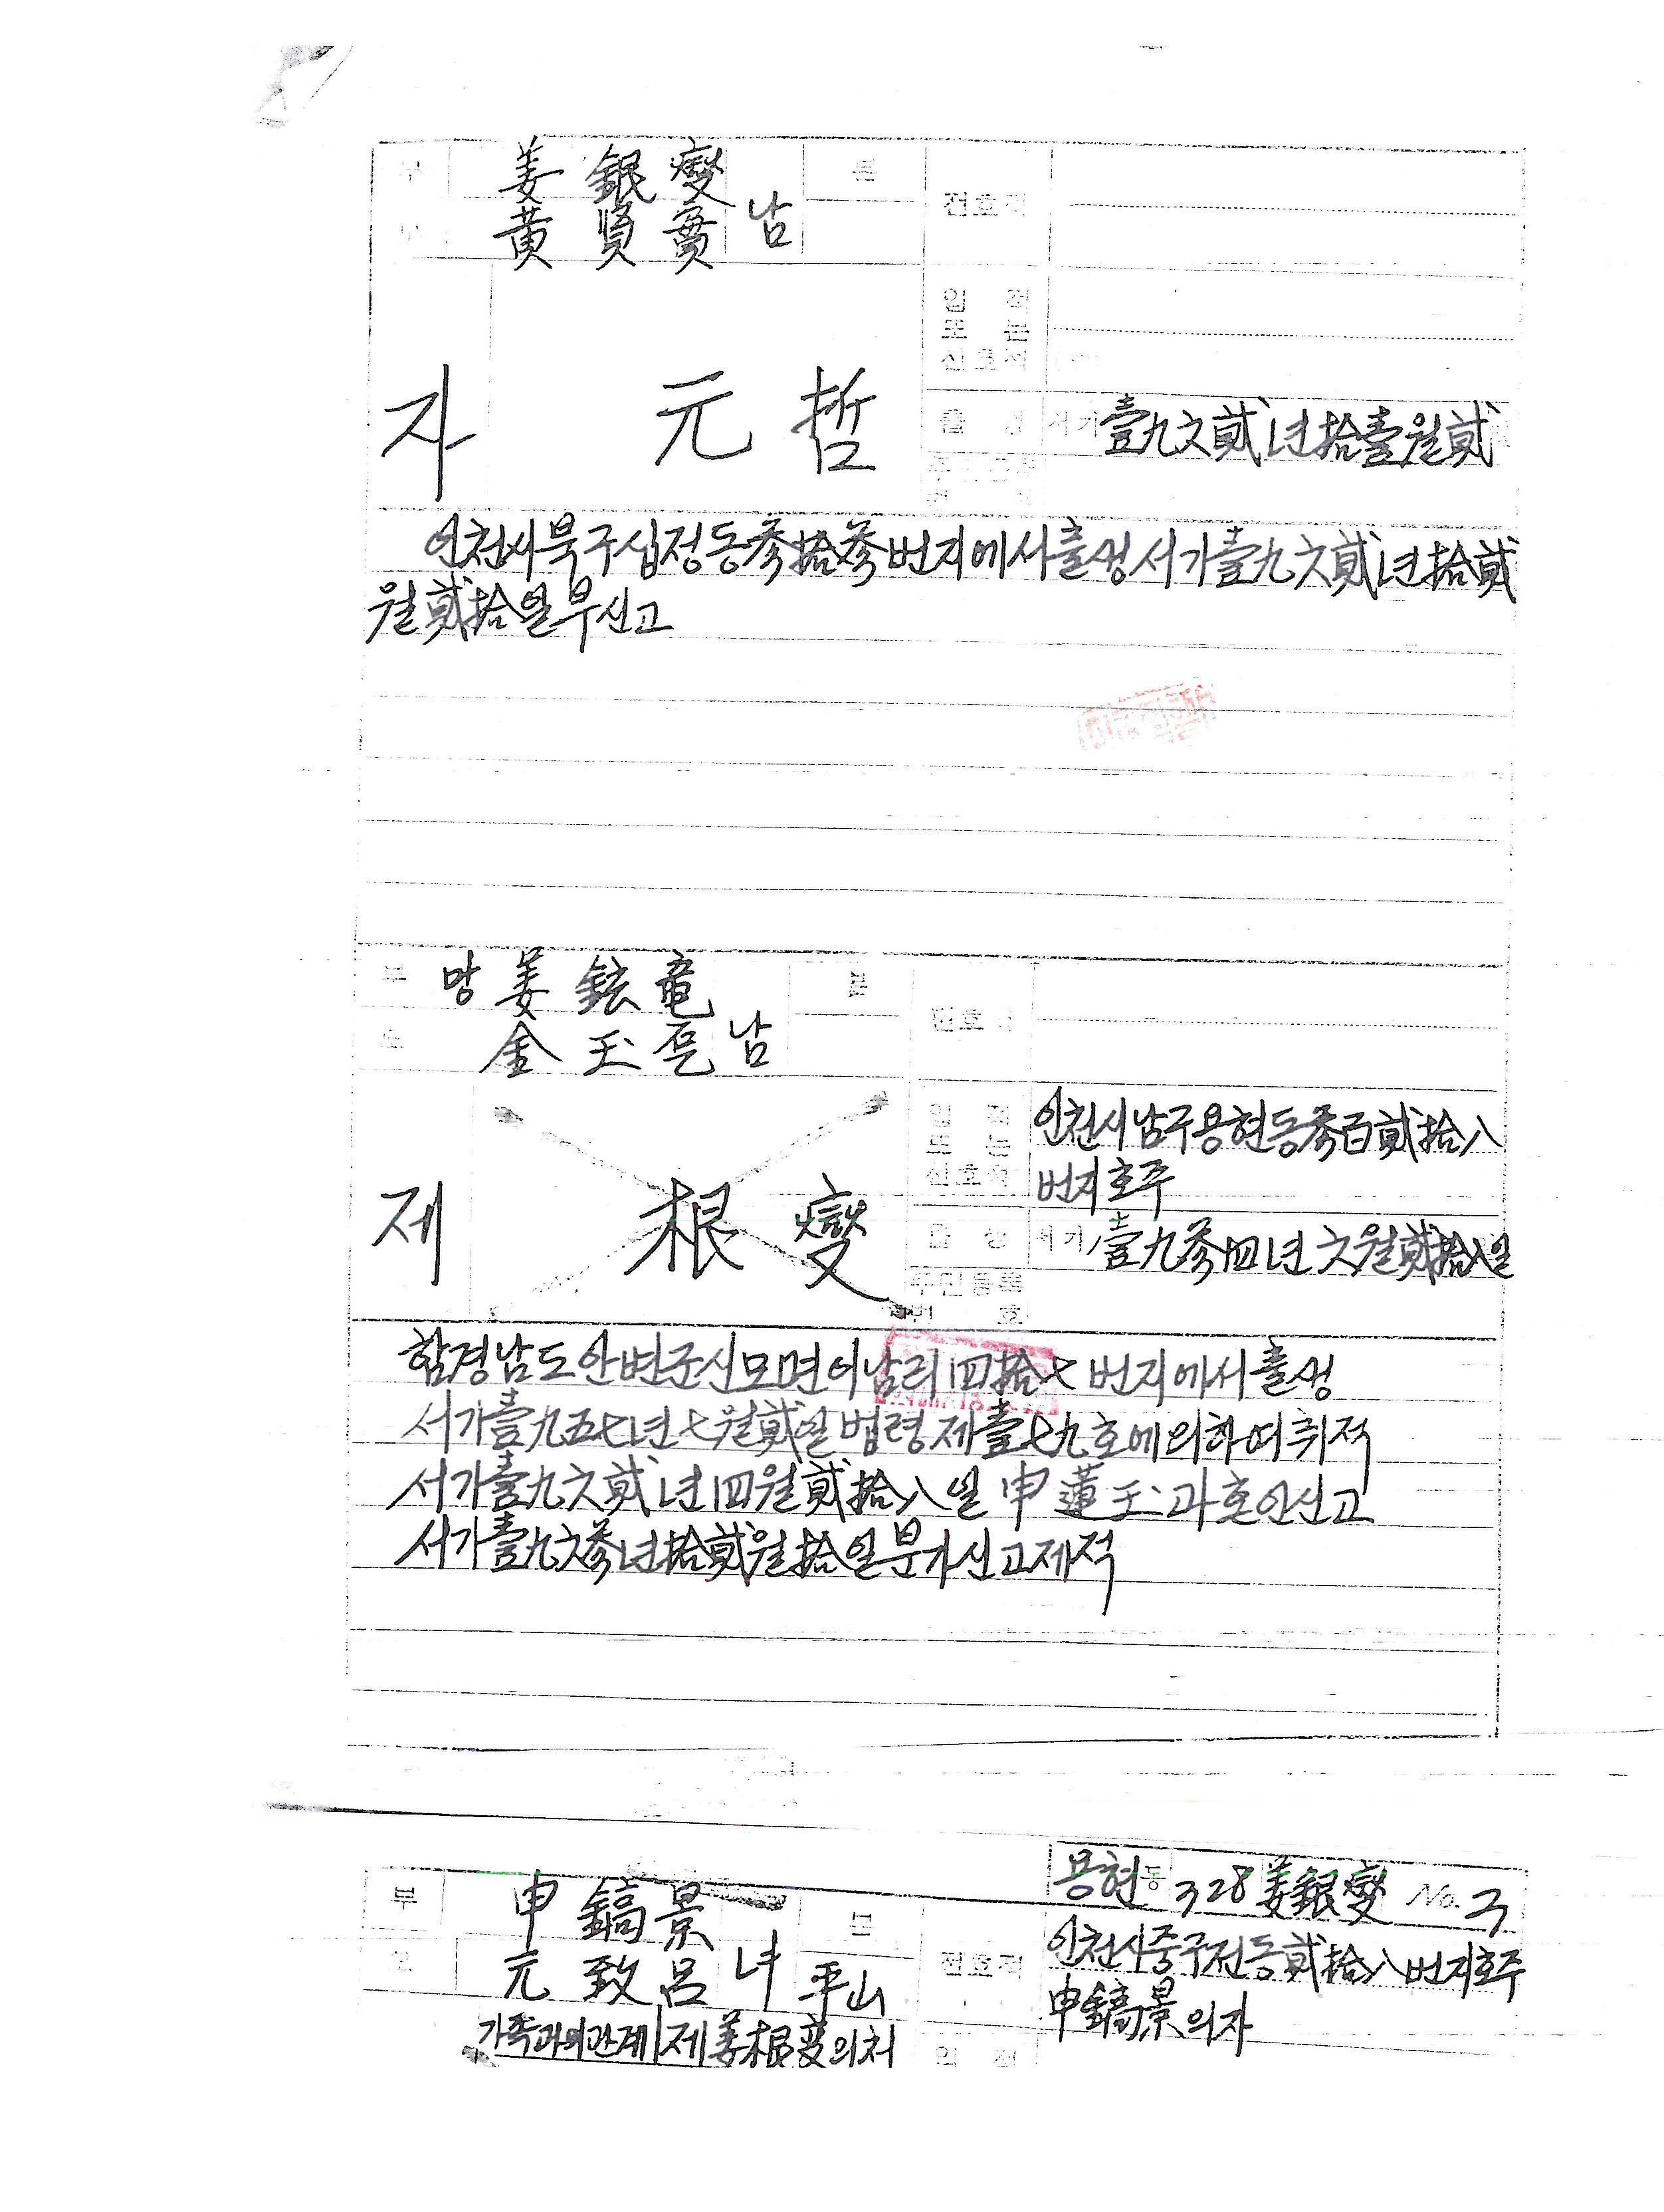 부 姜銀燮 본
모 黃賢實 남
전호적
입적 또는 신호적
자 元哲
출생 서기 壹九六貳년拾壹월貳
인천시북구십정동參拾參번지에서출생서기壹九六貳년拾貳
월貳拾일부신고
부 망 姜鉉竜 본
모 金玉 남
전호적
입적 또는 신호적 인천시남구용현동參百貳拾八
번지호주
제 根燮
출생 서기 壹九參四년六월貳拾八일
주민등록번호
함경남도안변군신모면어남리四拾七번지에서출생
서기壹九五七년七월貳일법령제壹七九호에의하여취적
서기壹九六貳년四월貳拾八일申蓮玉과혼인신고
서기壹九六參년拾貳월拾일분가신고제적
용현동 328 姜銀燮 No. 3
부 申鎬景 본
元致呂 녀 平山
전호적 인천시중구전동貳拾八번지호주
申鎬景의자
가족과의관계 제姜根燮의처
입적